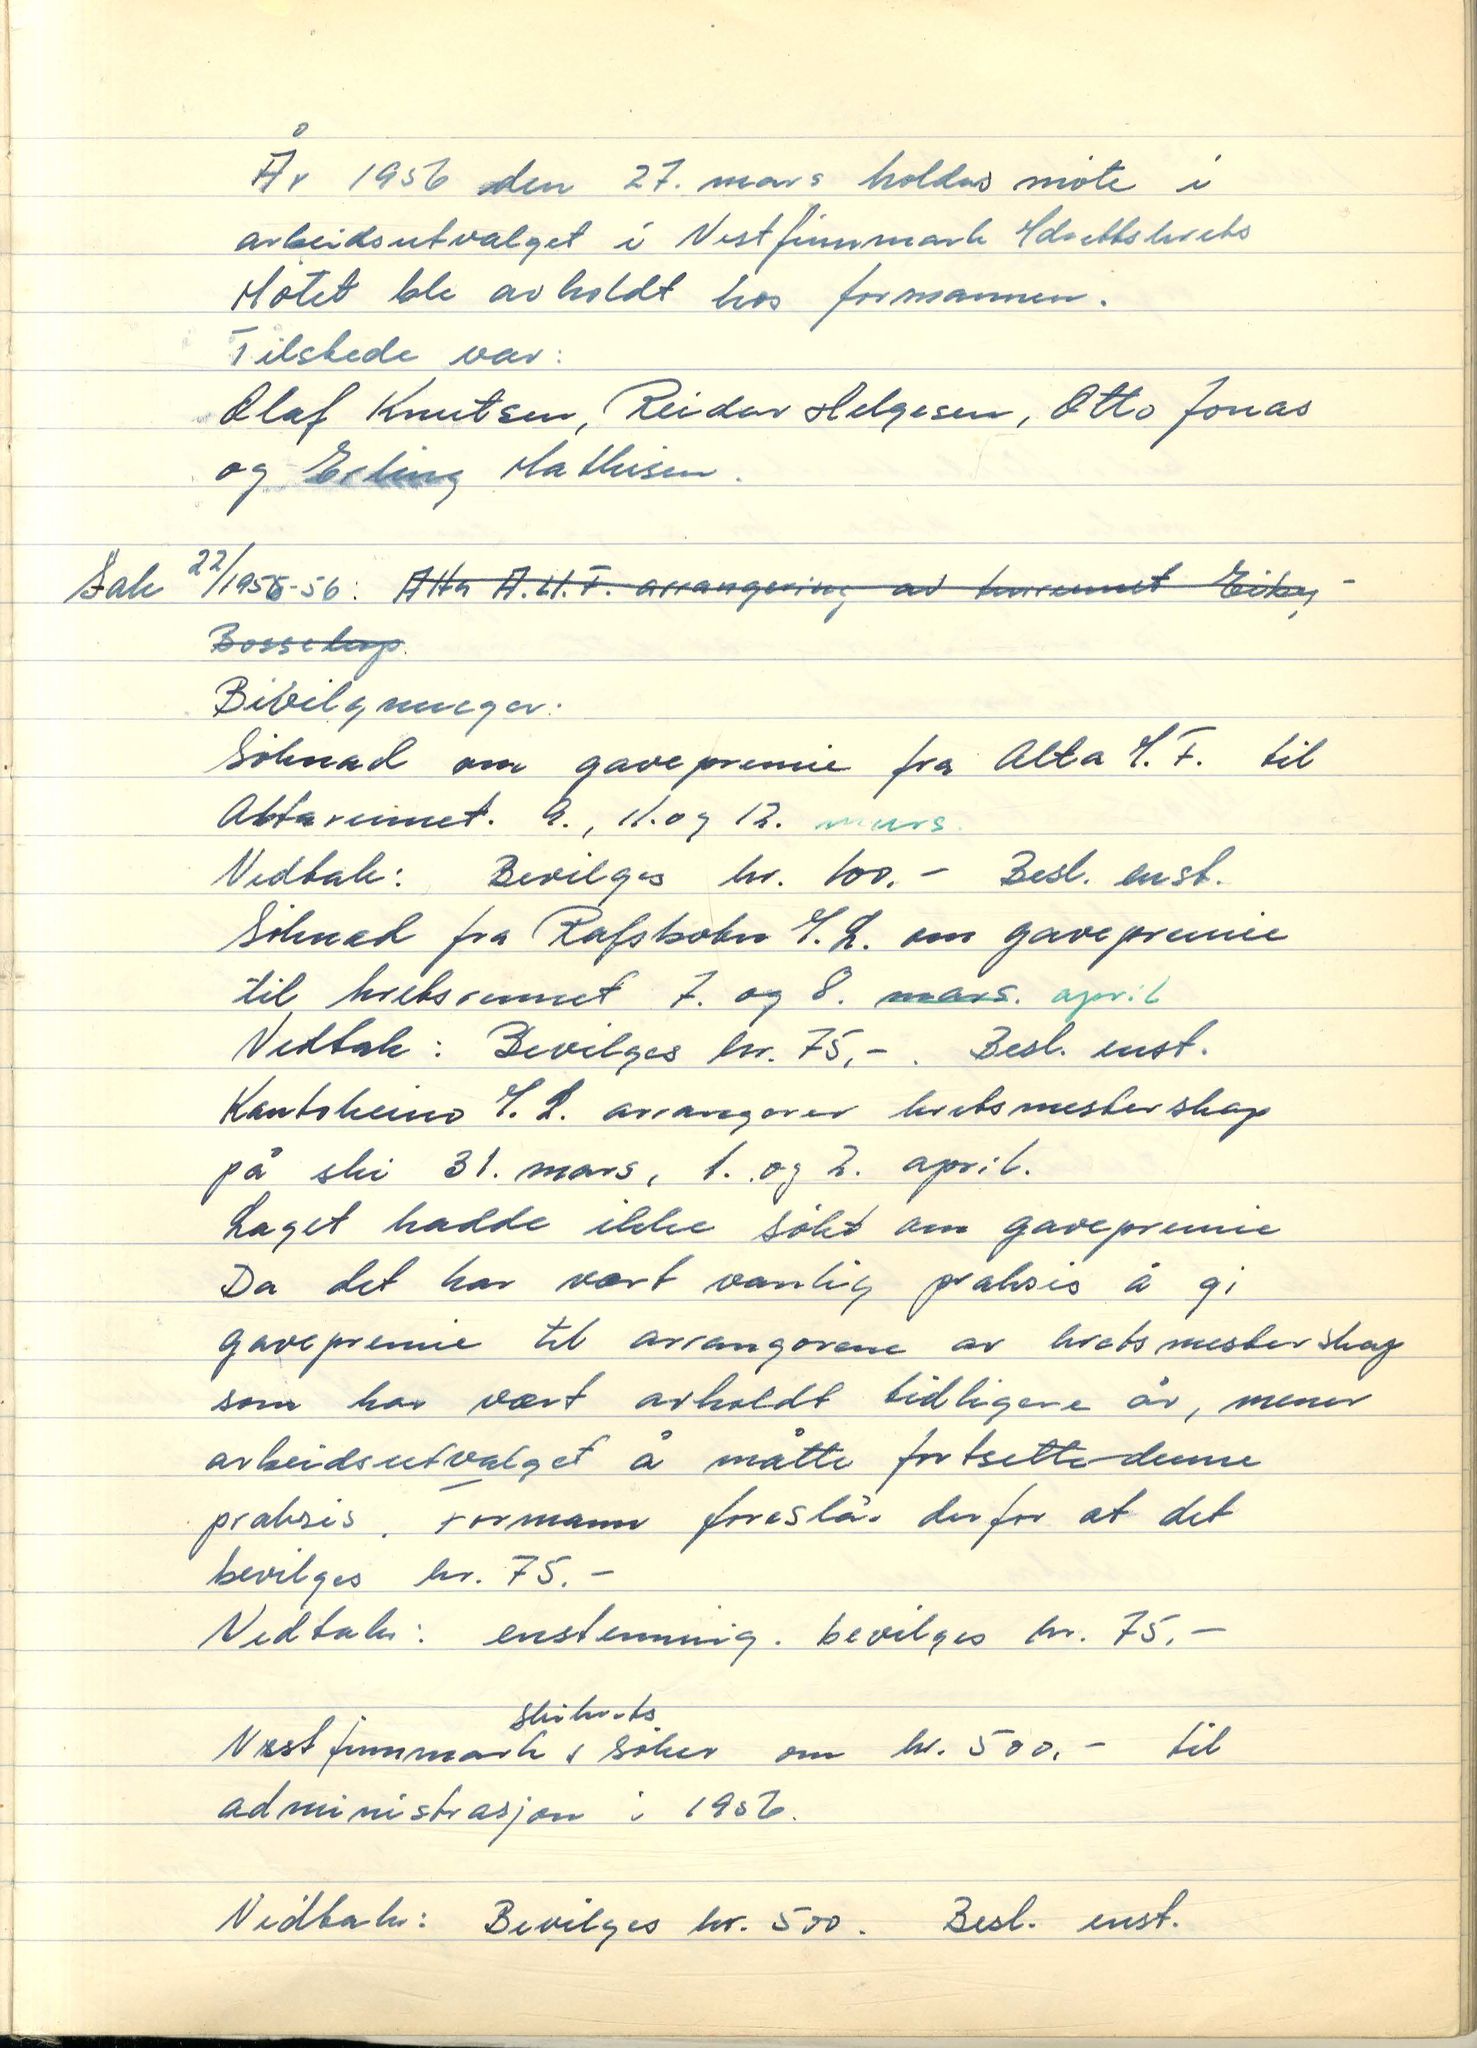 År 1956 den 27. mars holdes møte i
arbeidsutvalget i Vestfinnmark Idrettskrets
Møtet ble avholdt hos formannen.
Tilstede var:
Olaf Knutsen, Reidar Helgesen, Otto Jonas
og Erling Mathisen.
Sak 22/1955-56: Alta A.I.F. arrangering av turrennet Eiby -
Bossekop.
Bevilgninger:
Søknad om gavepremie fra Alta I.F. til
Altarennet. 9., 11. og 12. mars.
Vedtak: Bevilges kr. 100.- Besl. enst.
Søknad fra Rafsbotn I.L. om gavepremie
til kretsrennet 7. og 8. mars. april
Vedtak: Bevilges kr. 75,-. Besl. enst.
Kautokeino I.L. arrangerer kretsmesterskap
på ski 31. mars, 1. og 2. april.
Laget hadde ikke søkt om gavepremie
Da det har vært vanlig praksis å gi
gavepremie til arrangørene av kretsmesterskap
som har vært avholdt tidligere år, mener
arbeidsutvalget å måtte fortsette denne
praksis. Formann foreslår derfor at det
bevilges kr. 75.-
Vedtak: enstemmig. bevilges kr. 75,-
skikrets
Vestfinnmark søker om kr. 500.- til
administrasjon i 1956.
Vedtak: Bevilges kr. 500. Besl. enst.